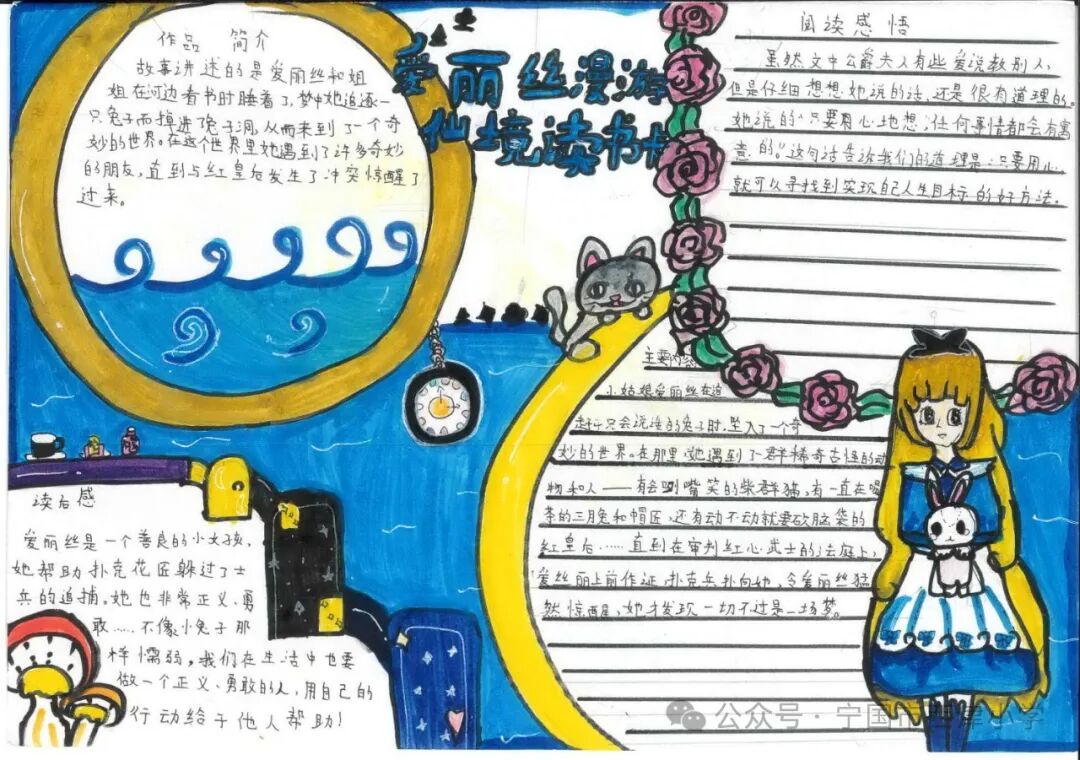 爱丽丝漫游
仙境读书卡
作品 简介
故事讲述的是爱丽丝和姐
姐在河边看书时睡着了,梦中她追逐一
只兔子而掉进了兔子洞,从而来到了一个奇
妙的世界。在这个世界里她遇到了许多奇妙
的朋友,直到与红皇后发生了冲突惊醒了
过来。
阅读感悟
虽然文中公爵夫人有些爱说教别人,
但是仔细想想她说的话,还是很有道理的。
她说的“只要用心地想,任何事情都会有寓
意的。”这句话告诉我们的道理是:只要用心,
就可以寻找到实现自己人生目标的好方法。
主要内容
小姑娘爱丽丝在追
赶一只会说话的兔子时,坠入了一个奇
妙的世界。在那里,她遇到了一群稀奇古怪的动
物和人——有会咧嘴笑的柴群猫,有一直在喝
茶的三月兔和帽匠,还有动不动就要砍脑袋的
红皇后……直到在审判红心武士的法庭上,
爱丝丽上前作证,扑克兵扑向她,令爱丽丝猛
然惊醒,她才发现一切不过是一场梦。
读后感
爱丽丝是一个善良的小女孩,
她帮助扑克花匠躲过了士
兵的追捕。她也非常正义、勇
敢……不像小兔子那
样懦弱,我们在生活中也要
做一个正义、勇敢的人,用自己的
行动给于他人帮助!
公众号·宁国市 小学